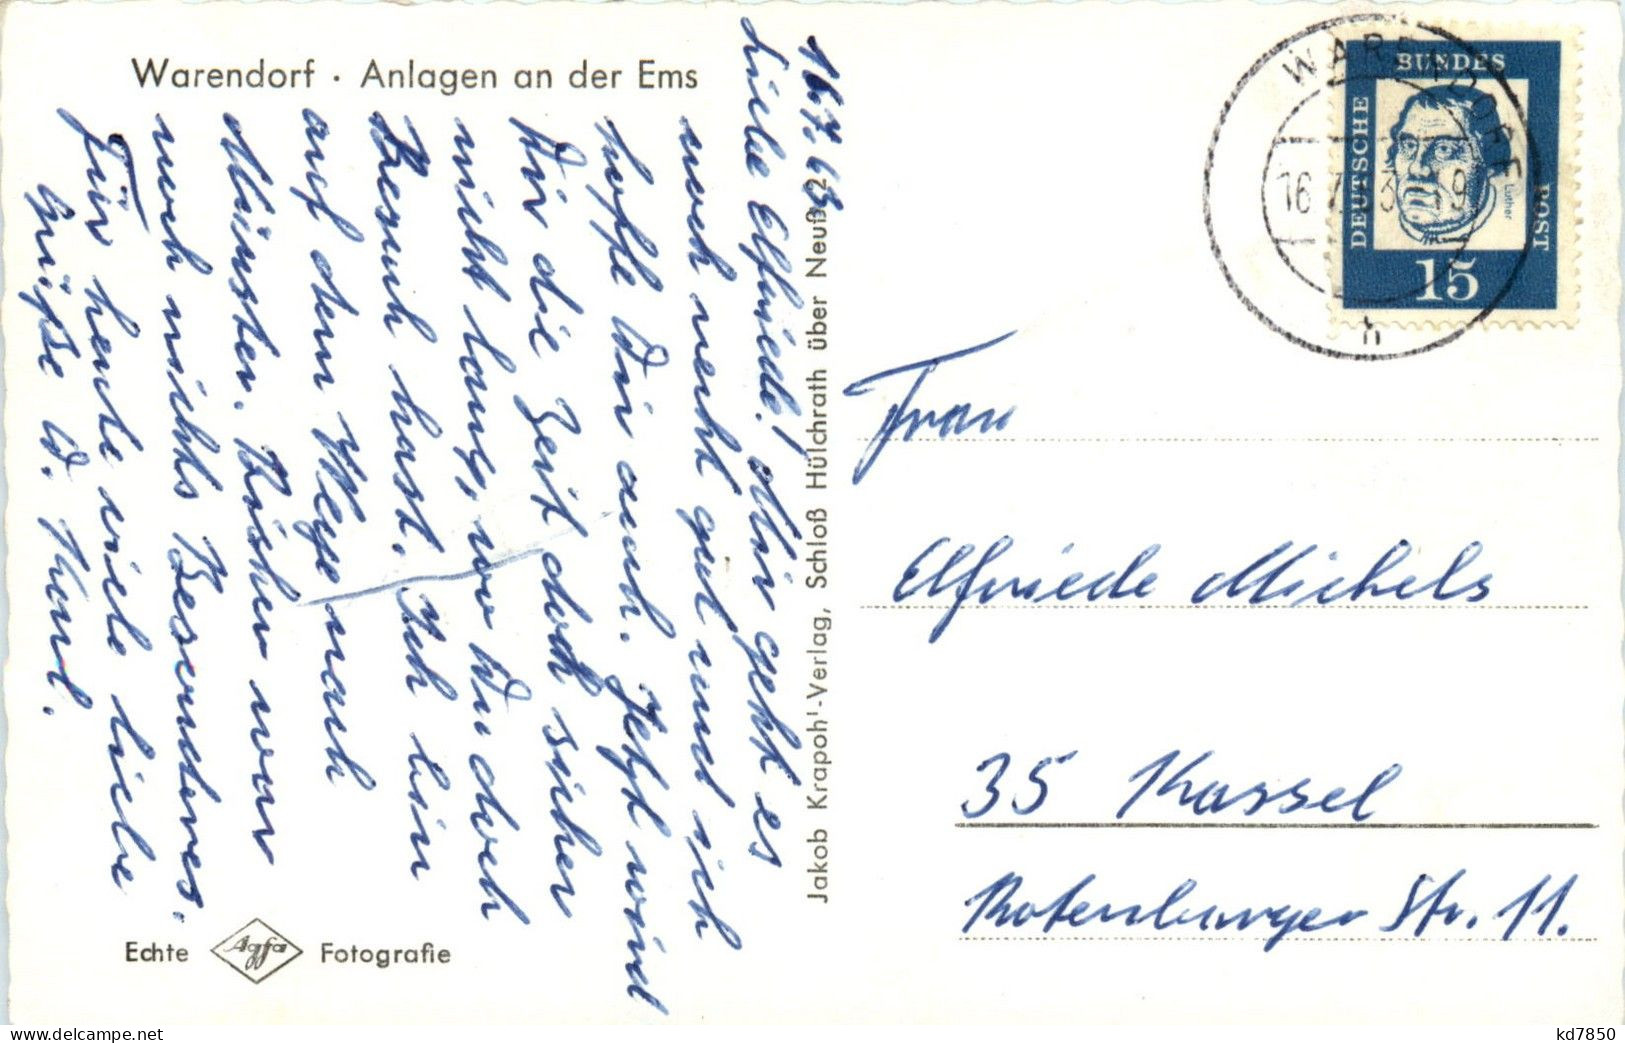 Warendorf · Anlagen an der Ems
16.7.63
Liebe Elfriede! Mir geht es
noch recht gut und ich
hoffe Dir auch. Jetzt wird
Dir die Zeit doch sicher
nicht lang, wo Du doch
Besuch hast. Ich bin
auf dem Wege nach
Münster. Bisher war
noch nichts Besonderes.
Für heute viele liebe
Grüße D.
Echte Agfa Fotografie
Jakob Krapohl-Verlag, Schloß Hülchrath über Neuß 2
WARENDORF
16.7.63-19
h
DEUTSCHE BUNDES POST
Luther
15
Frau
Elfriede Michels
35 Kassel
Rotenburger Str. 11.
delcampe.net
kd7850